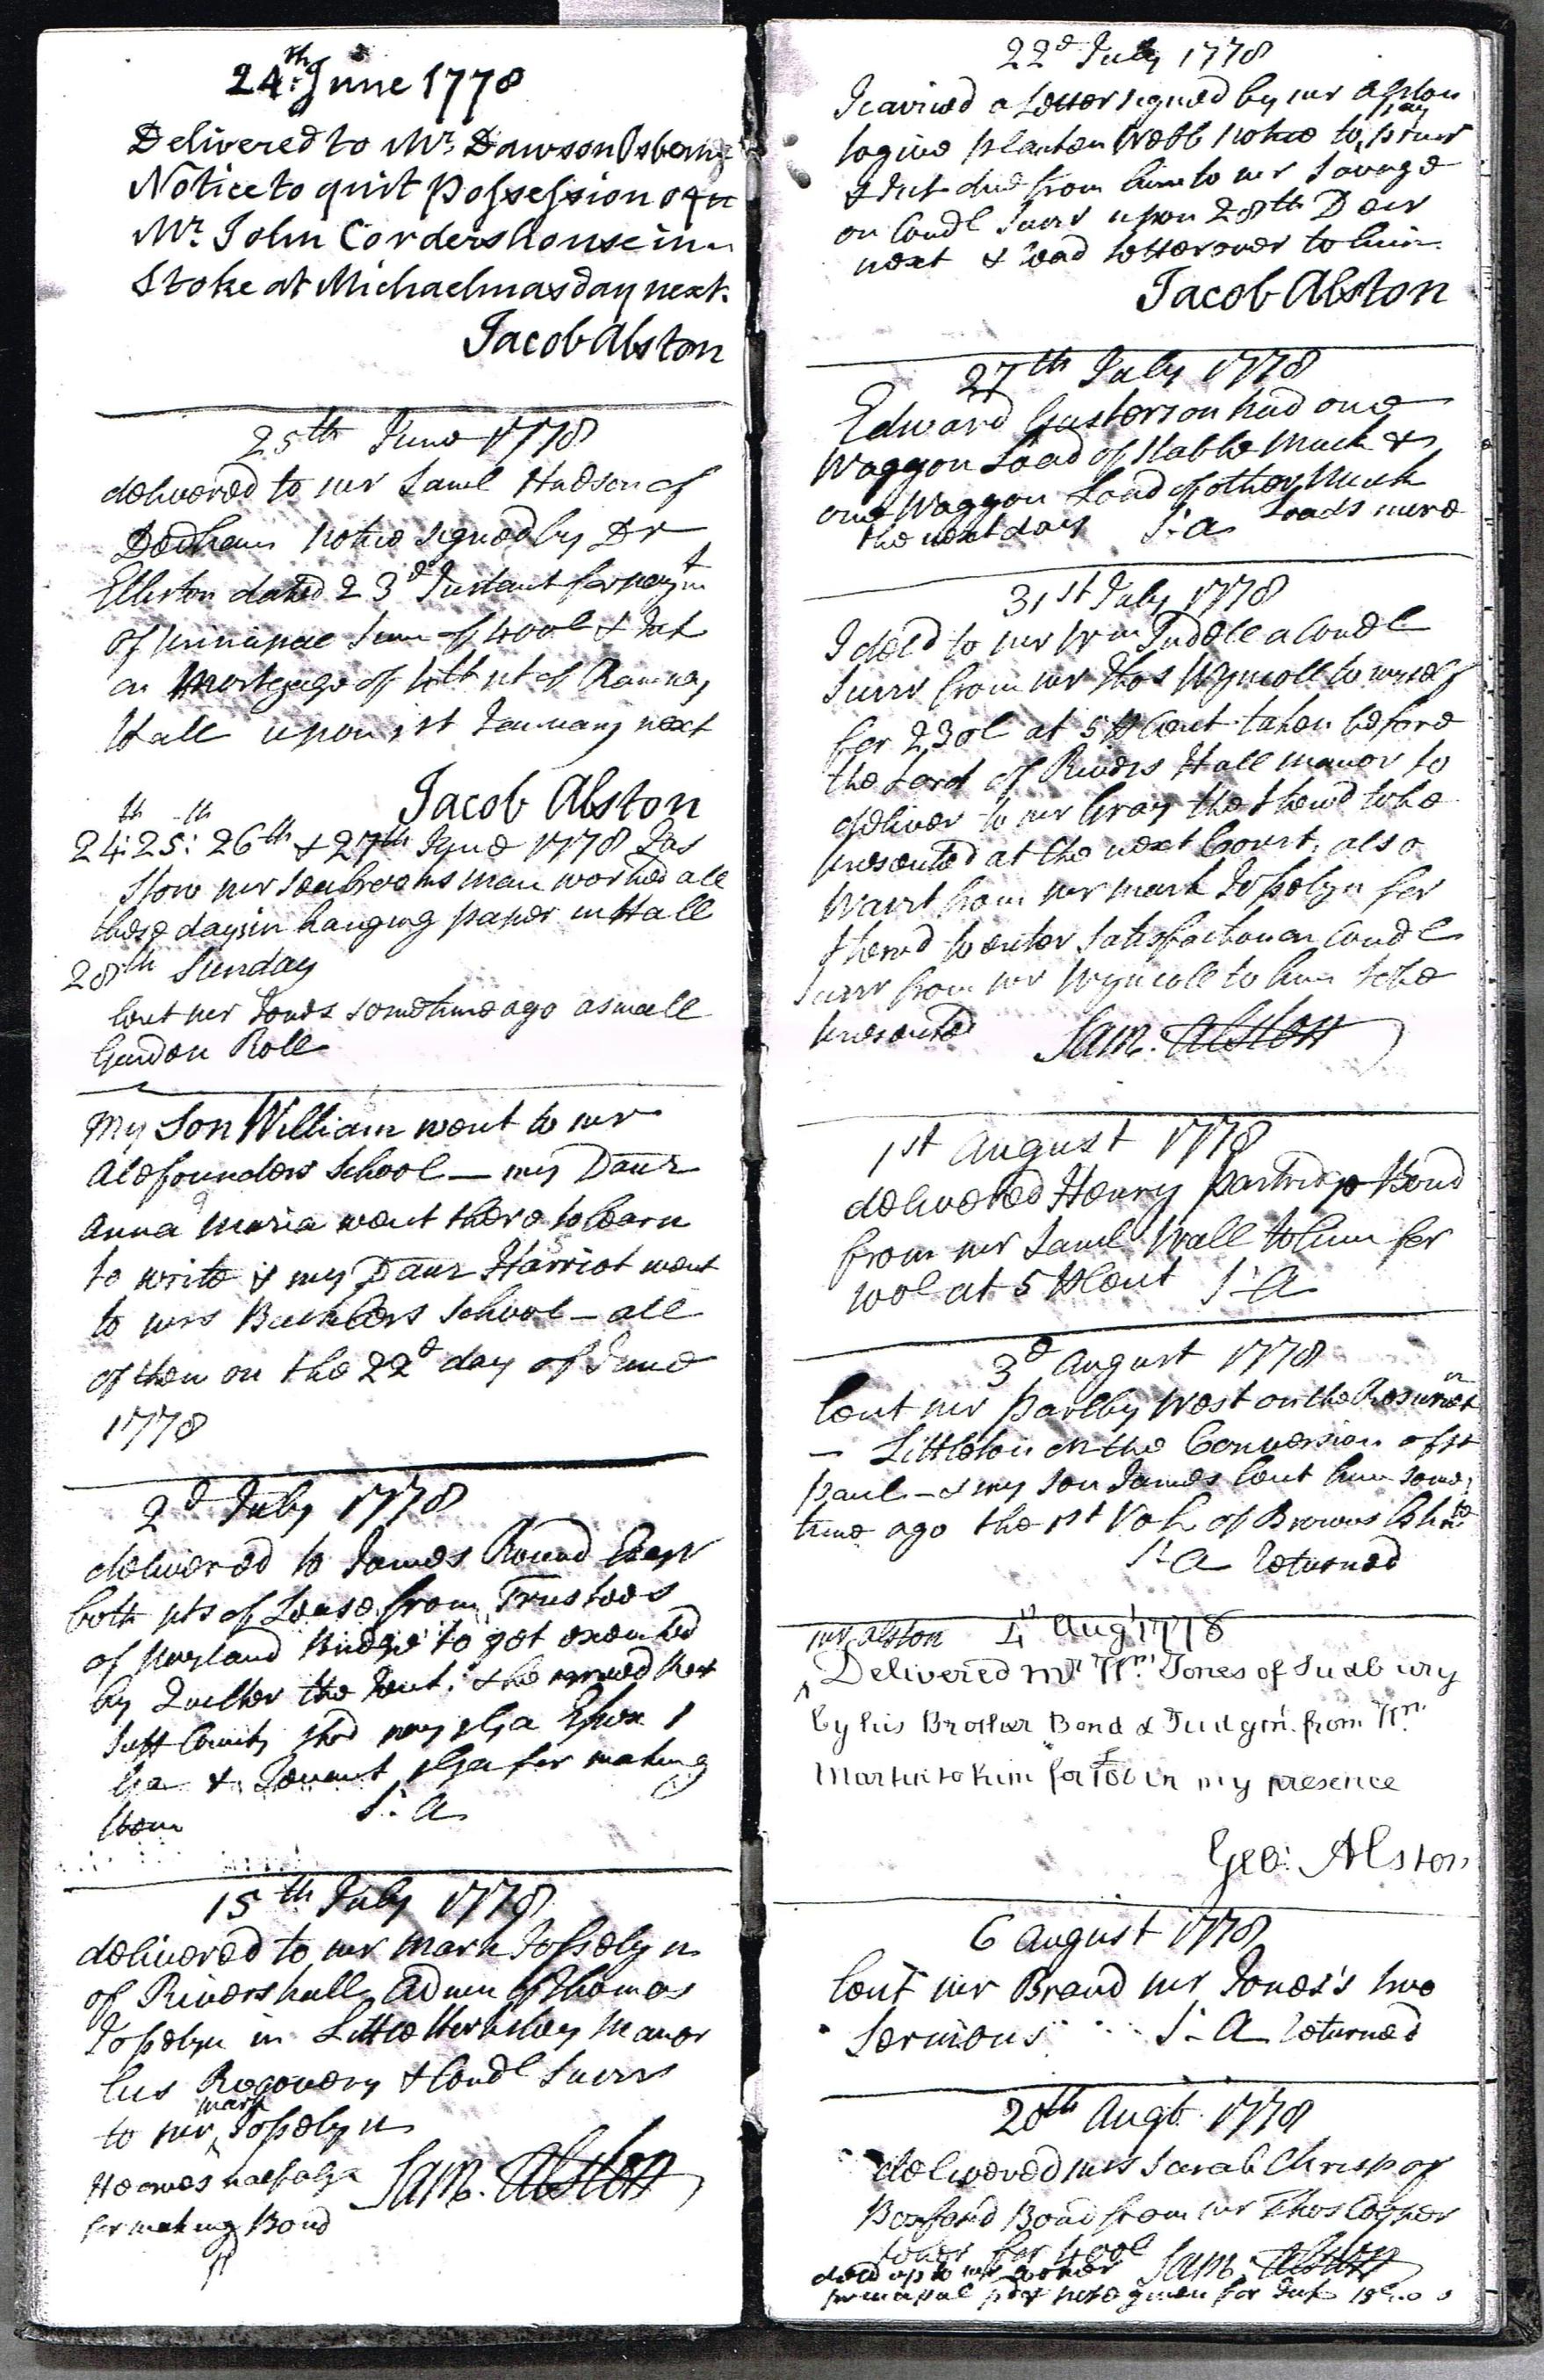 24th June 1778
Delivered to Mr. Dawson Osborne
Notice to quit Possession of
Mr. John Corders house in
Stoke at Michaelmas day next
Jacob Alston
25th June 1778
delivered to mr Saml Hudson of
Dedham notice signed by Dr
Elliston dated 23d Instant for paymt
of principal sum of 400l & Int
on Mortgage of pt of Ramsey
Hall upon 1st January next
Jacob Alston
24th: 25th: 26th & 27th June 1778 Jas
mr Seabrooks man worked all
these days in hanging paper in Hall
28th Sunday
lent mr Jones sometime ago a small
Garden Roll
My Son William went to mr
Alefounders School — my Daur
Anna Maria went there to learn
to write & my Daur Harriot went
to mrs Bucklers School — all
of them on the 22d day of June
1778
2d July 1778
delivered to James Round Esqr
both pts of Lease from Trustees
of Nayland Bridge to get executed
by the Tent: & he
Suff County shod pay Ga Essex 1
Ga & Tenant Ga for making
them S: A
15th July 1778
delivered to mr Mark Josselyn
of Rivers hall Admon of Thomas
Josselyn in Little Horkesley Manor
his Recovery & Condl Surrr
to mr Mark Josselyn
He owes half a Ga Sam. Alston
for making Bond
pd
22d July 1778
I carried a Letter signed by mr Alston
to give Planten Webb notice to pay princ
& Int due from him to mr Savage
on Condl Surrr upon 28th Decr
next & read letter over to him
Jacob Alston
27th July 1778
Edward Gusterson had one
Waggon Load of Stable Muck &
one Waggon Load of other Muck
the next day S: A Loads more
31st July 1778
I deld to mr Wm Tuddell a Condl
Surrr from mr Thos Wyncoll to myself
for 230l at 5 P Cent taken before
the Lord of Rivers Hall manor to
deliver to mr Gray the Steward to be
presented at the next Court, also
Warrt from mr Mark Josselyn for
Steward to enter Satisfaction on Condl
Surrr from mr Wyncoll to him to be
presented Sam. Alston
1st August 1778
delivered Henry Partridge Bond
from mr Saml Wall to him for
100l at 5 P Cent S: A
3d August 1778
lent mr Parlby West on the Resurrect
— Littleton on the Conversion of St
Paul — & my Son James lent him some
time ago the 1st Vol of Browns
S: A returned
mr Alston 4th Augt 1778
Delivered mr Wm: Jones of Sudbury
by his Brother Bond & Judgmt. from Wm
Martin to him for in my presence
Geo: Alston
6 August 1778
lent mr Brand mr Jones's two
Sermons S: A returned
20th Augt. 1778
delivered mrs Sarah Chrisp of
Boxford Bond from mr Thos Cooper
to her for 400l
deld up to mr Cooper Sam. Alston
principal pd & note given for Int